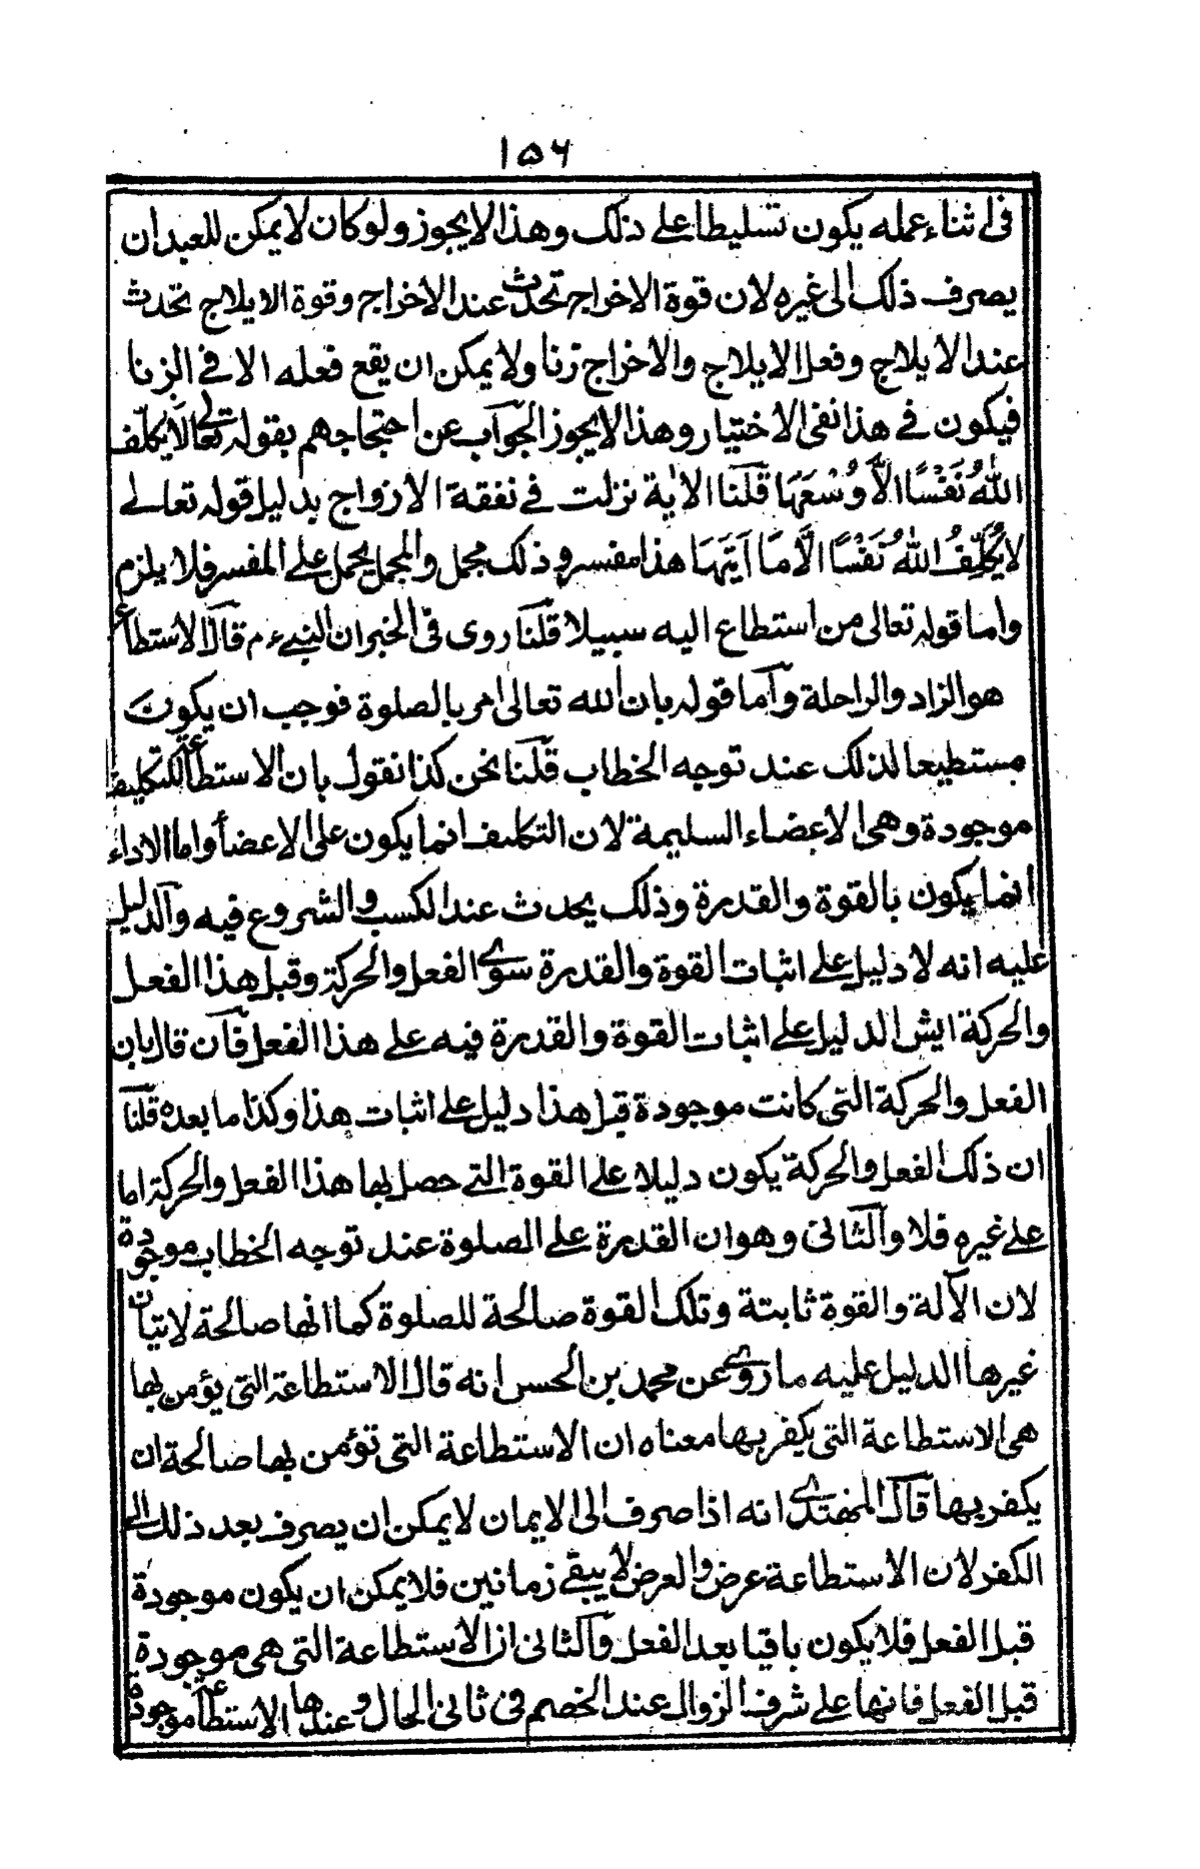 ١٥٦
فى اثناء عمله يكون تسليطا على ذلك وهذا لا يجوز ولو كان لا يمكن للعبد ان
يصرف ذلك الى غيره لان قوة الاخراج تحدث عند الاخراج وقوة الايلاج تحدث
عند الايلاج وفعل الايلاج والاخراج زنا ولا يمكن ان يقع فعله الا فى الزنا
فيكون فى هذا نفى الاختيار وهذا لا يجوز الجواب عن احتجاجهم بقوله تعالى لا يكلف
الله نفسا الا وسعها قلنا الاية نزلت فى نفقة الازواج بدليل قوله تعالى
لا يكلف الله نفسا الا ما آتيها هذا مفسر و ذلك مجمل والمجمل يحمل على المفسر فلا يلزم
واما قوله تعالى من استطاع اليه سبيلا قلنا روى فى الخبر ان النبى ءم قال الاستطاعة
هو الزاد والراحلة واما قوله بان الله تعالى امر بالصلوة فوجب ان يكون
مستطيعا لذلك عند توجه الخطاب قلنا نحن كذا نقول بان الاستطاعة للتكليف
موجودة وهى الاعضاء السليمة لان التكليف انما يكون على الاعضأ واما الاداء
انما يكون بالقوة والقدرة وذلك يحدث عند الكسب والشروع فيه والدليل
عليه انه لا دليل على اثبات القوة والقدرة سوى الفعل والحركة وقبل هذا الفعل
والحركة ايش الدليل على اثبات القوة والقدرة فيه على هذا الفعل فان قال بان
الفعل والحركة التى كانت موجودة قبل هذا دليل على اثبات هذا وكذا ما بعده قلنا
ان ذلك الفعل والحركة يكون دليلا على القوة التى حصل بها هذا الفعل والحركة اما
على غيره فلا والثانى وهو ان القدرة على الصلوة عند توجه الخطاب موجودة
لان الآلة والقوة ثابتة وتلك القوة صالحة للصلوة كما انها صالحة لاتيان
غيرها الدليل عليه ما روى عن محمد بن الحسن انه قال الاستطاعة التى يؤمن بها
هى الاستطاعة التى يكفر بها معناه ان الاستطاعة التى تؤمن بها صالحة ان
يكفر بها قال المهتدى انه اذا صرف الى الايمان لا يمكن ان يصرف بعد ذلك الى
الكفر لان الاستطاعة عرض والعرض لا يبقى زمانين فلا يمكن ان يكون موجودة
قبل الفعل فلا يكون باقيا بعد الفعل والثانى ان الاستطاعة التى هى موجودة
قبل الفعل فانها على شرف الزوال عند الخصم فى ثانى الحال وعندها الاستطاعة موجودة